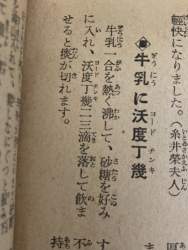 輕快になりました。（糸井榮夫人）
■牛乳に沃度丁幾
牛乳一合を熱く沸して、砂糖を好み
に入れ、沃度丁幾二三滴を落して飲ま
せると痰が切れます。